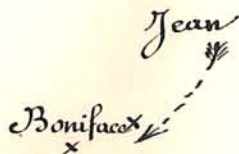 Jean
Boniface